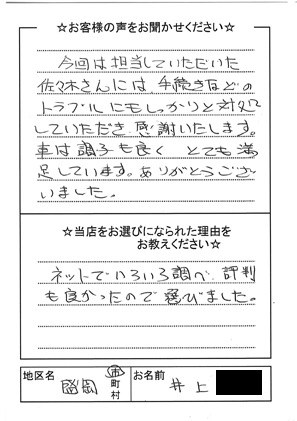 ☆お客様の声をお聞かせください☆
今回は担当していただいた
佐々木さんには手続きなどの
トラブルにもしっかりと対処
していただき、感謝いたします。
車は調子も良く とても満
足しています。ありがとうござ
いました。
☆当店をお選びになられた理由を
お教えください☆
ネットでいろいろ調べ、評判
も良かったので選びました。
地区名
市
町
村
お名前
井上